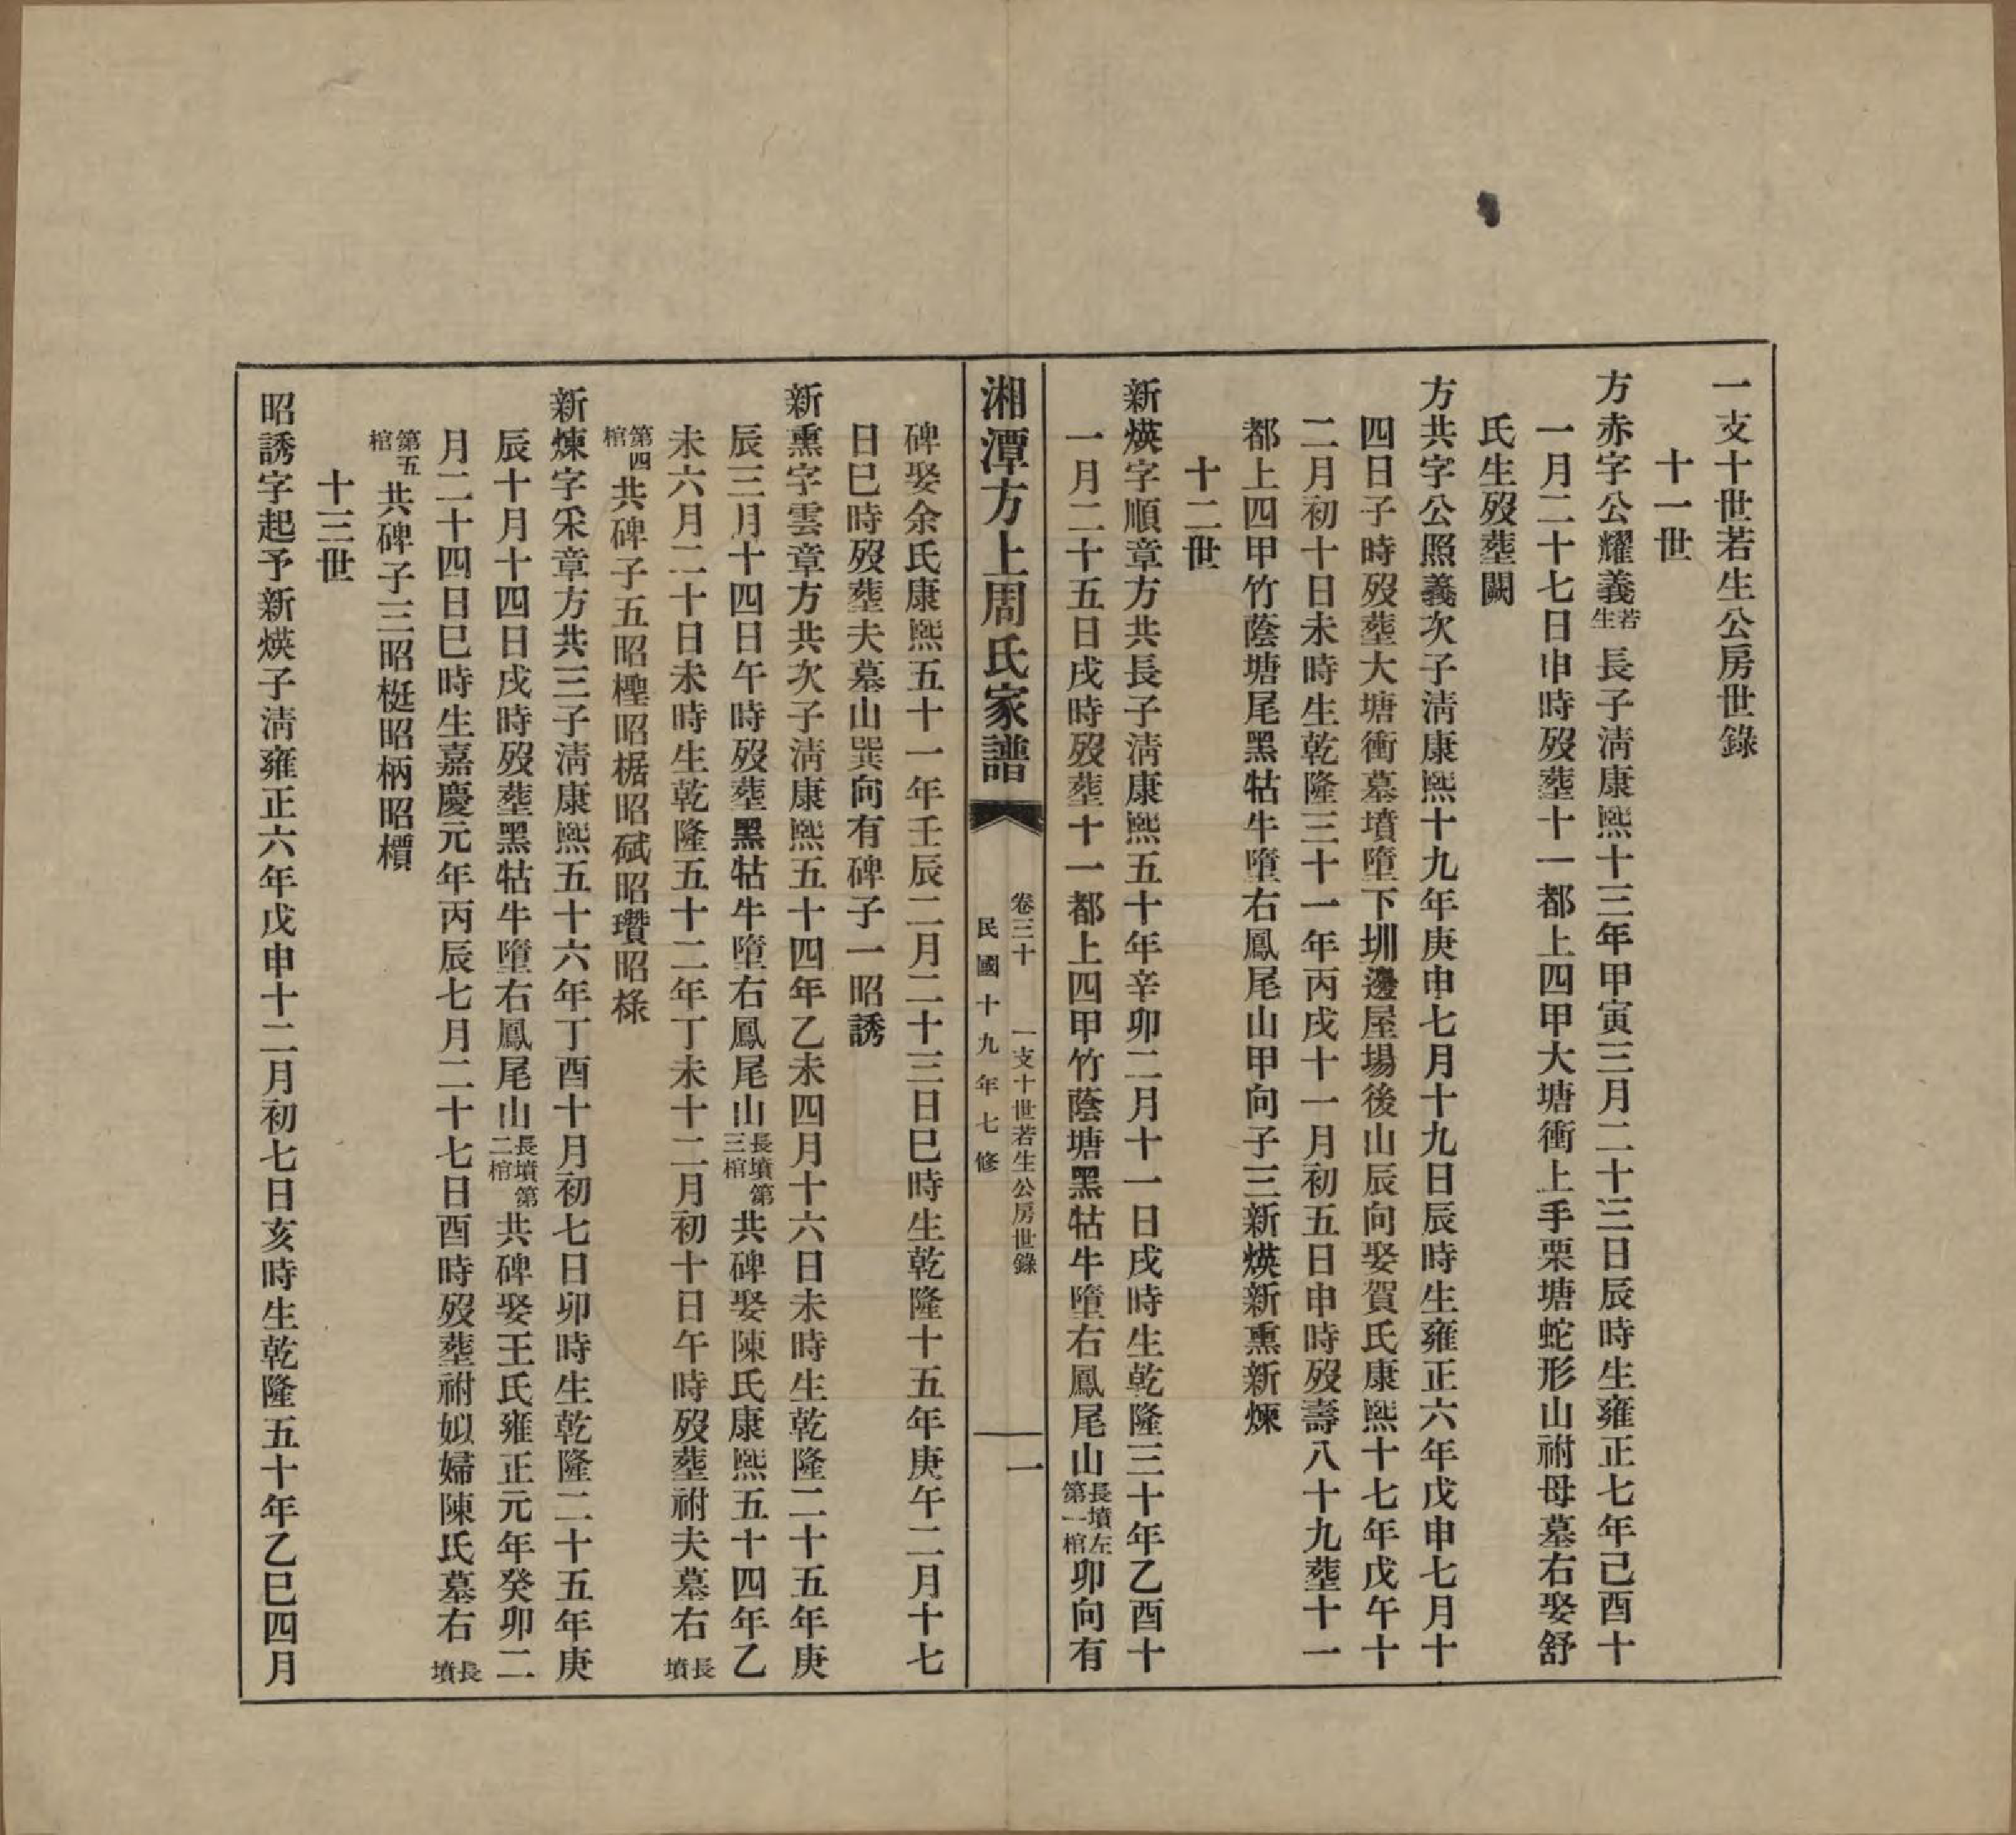 一支十世若生公房世錄
十一世
方赤字公耀義若生長子淸康熙十三年甲寅三月二十三日辰時生雍正七年己酉十
一月二十七日申時歿塟十一都上四甲大塘衝上手栗塘蛇形山祔母墓右娶舒
氏生歿塟闕
方共字公照義次子淸康熙十九年庚申七月十九日辰時生雍正六年戊申七月十
四日子時歿塟大塘衝墓墳墮下圳邊屋場後山辰向娶賀氏康熙十七年戊午十
二月初十日未時生乾隆三十一年丙戌十一月初五日申時歿壽八十九塟十一
都上四甲竹蔭塘尾黑牯牛墮右鳳尾山甲向子三新煐新熏新煉
十二世
新煐字順章方共長子淸康熙五十年辛卯二月十一日戌時生乾隆三十年乙酉十
一月二十五日戌時歿塟十一都上四甲竹蔭塘黑牯牛墮右鳳尾山長墳左第一棺卯向有
湘潭方上周氏家譜
卷三十 一支十世若生公房世錄
民國十九年七修
一
碑娶余氏康熙五十一年壬辰二月二十三日巳時生乾隆十五年庚午二月十七
日巳時歿塟夫墓山巽向有碑子一昭誘
新熏字雲章方共次子淸康熙五十四年乙未四月十六日未時生乾隆二十五年庚
辰三月十四日午時歿塟黑牯牛墮右鳳尾山長墳第三棺共碑娶陳氏康熙五十四年乙
未六月二十日未時生乾隆五十二年丁未十二月初十日午時歿塟祔夫墓右長墳
第四棺共碑子五昭檉昭椐昭斌昭瓚昭椂
新煉字釆章方共三子淸康熙五十六年丁酉十月初七日卯時生乾隆二十五年庚
辰十月十四日戌時歿塟黑牯牛墮右鳳尾山長墳第二棺共碑娶王氏雍正元年癸卯二
月二十四日巳時生嘉慶元年丙辰七月二十七日酉時歿塟祔姒婦陳氏墓右長墳
第五棺共碑子三昭梃昭柄昭櫝
十三世
昭誘字起予新煐子淸雍正六年戊申十二月初七日亥時生乾隆五十年乙巳四月